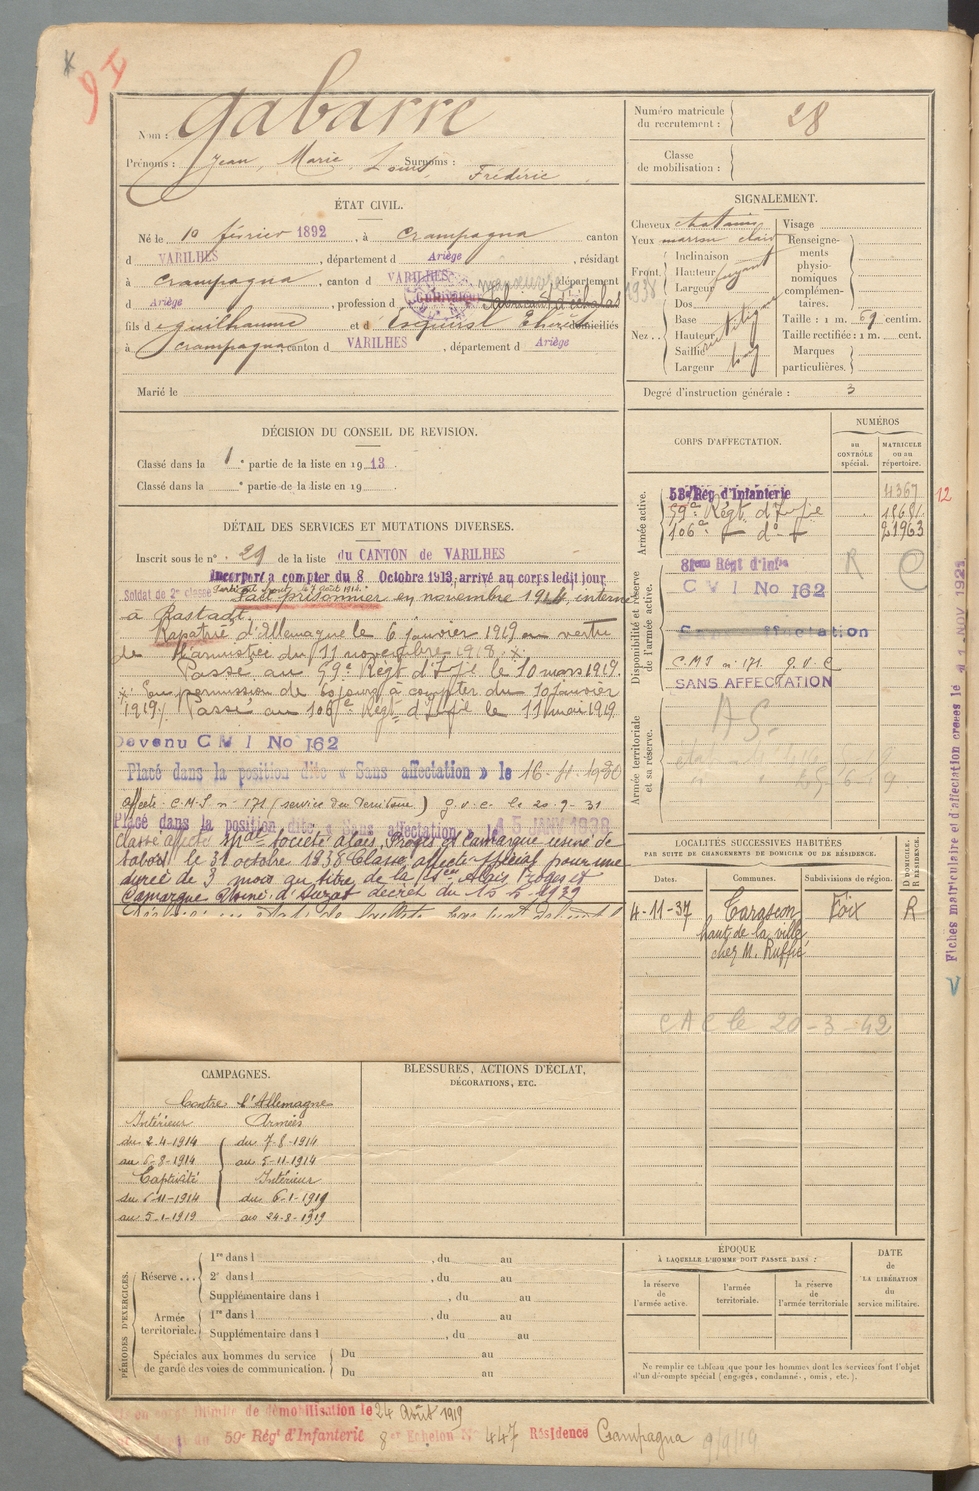 Nom : Gabarre
Prénoms : Jean, Marie Louis Surnoms : Frédéric
Numéro matricule du recrutement : 28
Classe de mobilisation :
ÉTAT CIVIL.
Né le 10 février 1892, à Crampagna canton
d VARILHES, département d Ariège, résidant
à Crampagna, canton d VARILHES département
d Ariège, profession d Cultivateur manœuvre 1938
fils d e Guilhaume et d Esquirol domiciliés
à Crampagna canton d VARILHES, département d Ariège
Marié le
SIGNALEMENT.
Cheveux chatains
Yeux marron clair
Front. Inclinaison
Hauteur fuyant
Largeur
Nez. Dos
Base
Hauteur
Saillie
Largeur long
Visage
Renseignements physionomiques complémentaires.
Taille : 1 m. 69 centim.
Taille rectifiée : 1 m. cent.
Marques particulières.
Degré d'instruction générale : 3
DÉCISION DU CONSEIL DE REVISION.
Classé dans la 1e partie de la liste en 1913.
Classé dans la e partie de la liste en 19
DÉTAIL DES SERVICES ET MUTATIONS DIVERSES.
Inscrit sous le n° 29 de la liste du CANTON de VARILHES
Incorporé à compter du 8 Octobre 1913, arrivé au corps ledit jour
Soldat de 2e classe Fait prisonnier en novembre 1914, interné
à Rastadt.
Rapatrié d'Allemagne le 6 janvier 1919 en vertu
de l'armistice du 11 novembre 1918. x.
Passé au 59e Régt d'Infie le 10 mars 1919.
x. En permission de 60 jours à compter du 10 janvier
1919. Passé au 106e Régt d'Infie le 11 mai 1919
Devenu C M I No 162
Placé dans la position dite « Sans affectation » le 16-11-1930
Affecté C.M.I. n° 171 (service du Territoire) g.v.c. le 20-9-31
Placé dans la position dite « Sans affectation » le 15 JANV 1938
Classé affecté spal Société Alais, Froges et Camargue usine de
Sabart le 31 octobre 1938 Classé affecté spécial pour une
durée de 3 mois au titre de la Alais Froges et
Camargue Usine d'Auzat décret du 15-5-1939
CORPS D'AFFECTATION.
NUMÉROS
au CONTRÔLE spécial.
MATRICULE ou au répertoire.
Armée active.
53e Rég d'Infanterie 4367
59e Régt d'Infie
106e do 21963
12
Disponibilité et réserve de l'armée active.
81eme Régt d'Infie R
C M I No 162
Sans affectation
C.M.I n° 171. g.v.c
SANS AFFECTATION
Armée territoriale et sa réserve.
AS.
LOCALITÉS SUCCESSIVES HABITÉES
PAR SUITE DE CHANGEMENTS DE DOMICILE OU DE RÉSIDENCE.
Dates. Communes. Subdivisions de région. D DOMICILE. R RÉSIDENCE.
4-11-37 Tarascon Foix R
haut de la ville
chez M. Ruffié
CAC le 20-3-42
Fiches matriculaire et d'affectation créées le 11 NOV 1921
V
CAMPAGNES.
Contre l'Allemagne
Intérieur Armées
du 2-4-1914 du 7-8-1914
au 6-8-1914 au 5-11-1914
Captivité Intérieur
du 6-11-1914 du 6-1-1919
au 5-1-1919 au 24-8-1919
BLESSURES, ACTIONS D'ÉCLAT,
DÉCORATIONS, ETC.
PÉRIODES D'EXERCICES.
Réserve...
1re dans l , du au
2e dans l , du au
Supplémentaire dans l , du au
Armée territoriale.
1re dans l , du au
Supplémentaire dans l , du au
Spéciales aux hommes du service de garde des voies de communication.
Du au
Du au
ÉPOQUE
À LAQUELLE L'HOMME DOIT PASSER DANS :
la réserve de l'armée active.
l'armée territoriale.
la réserve de l'armée territoriale
DATE de LA LIBÉRATION du service militaire.
Ne remplir ce tableau que pour les hommes dont les services font l'objet
d'un décompte spécial (engagés, condamnés, omis, etc.).
en congé illimité de démobilisation le 24 Août 1919
59e Régt d'Infanterie 8e Echelon No 447 Résidence Crampagna 9/9/19